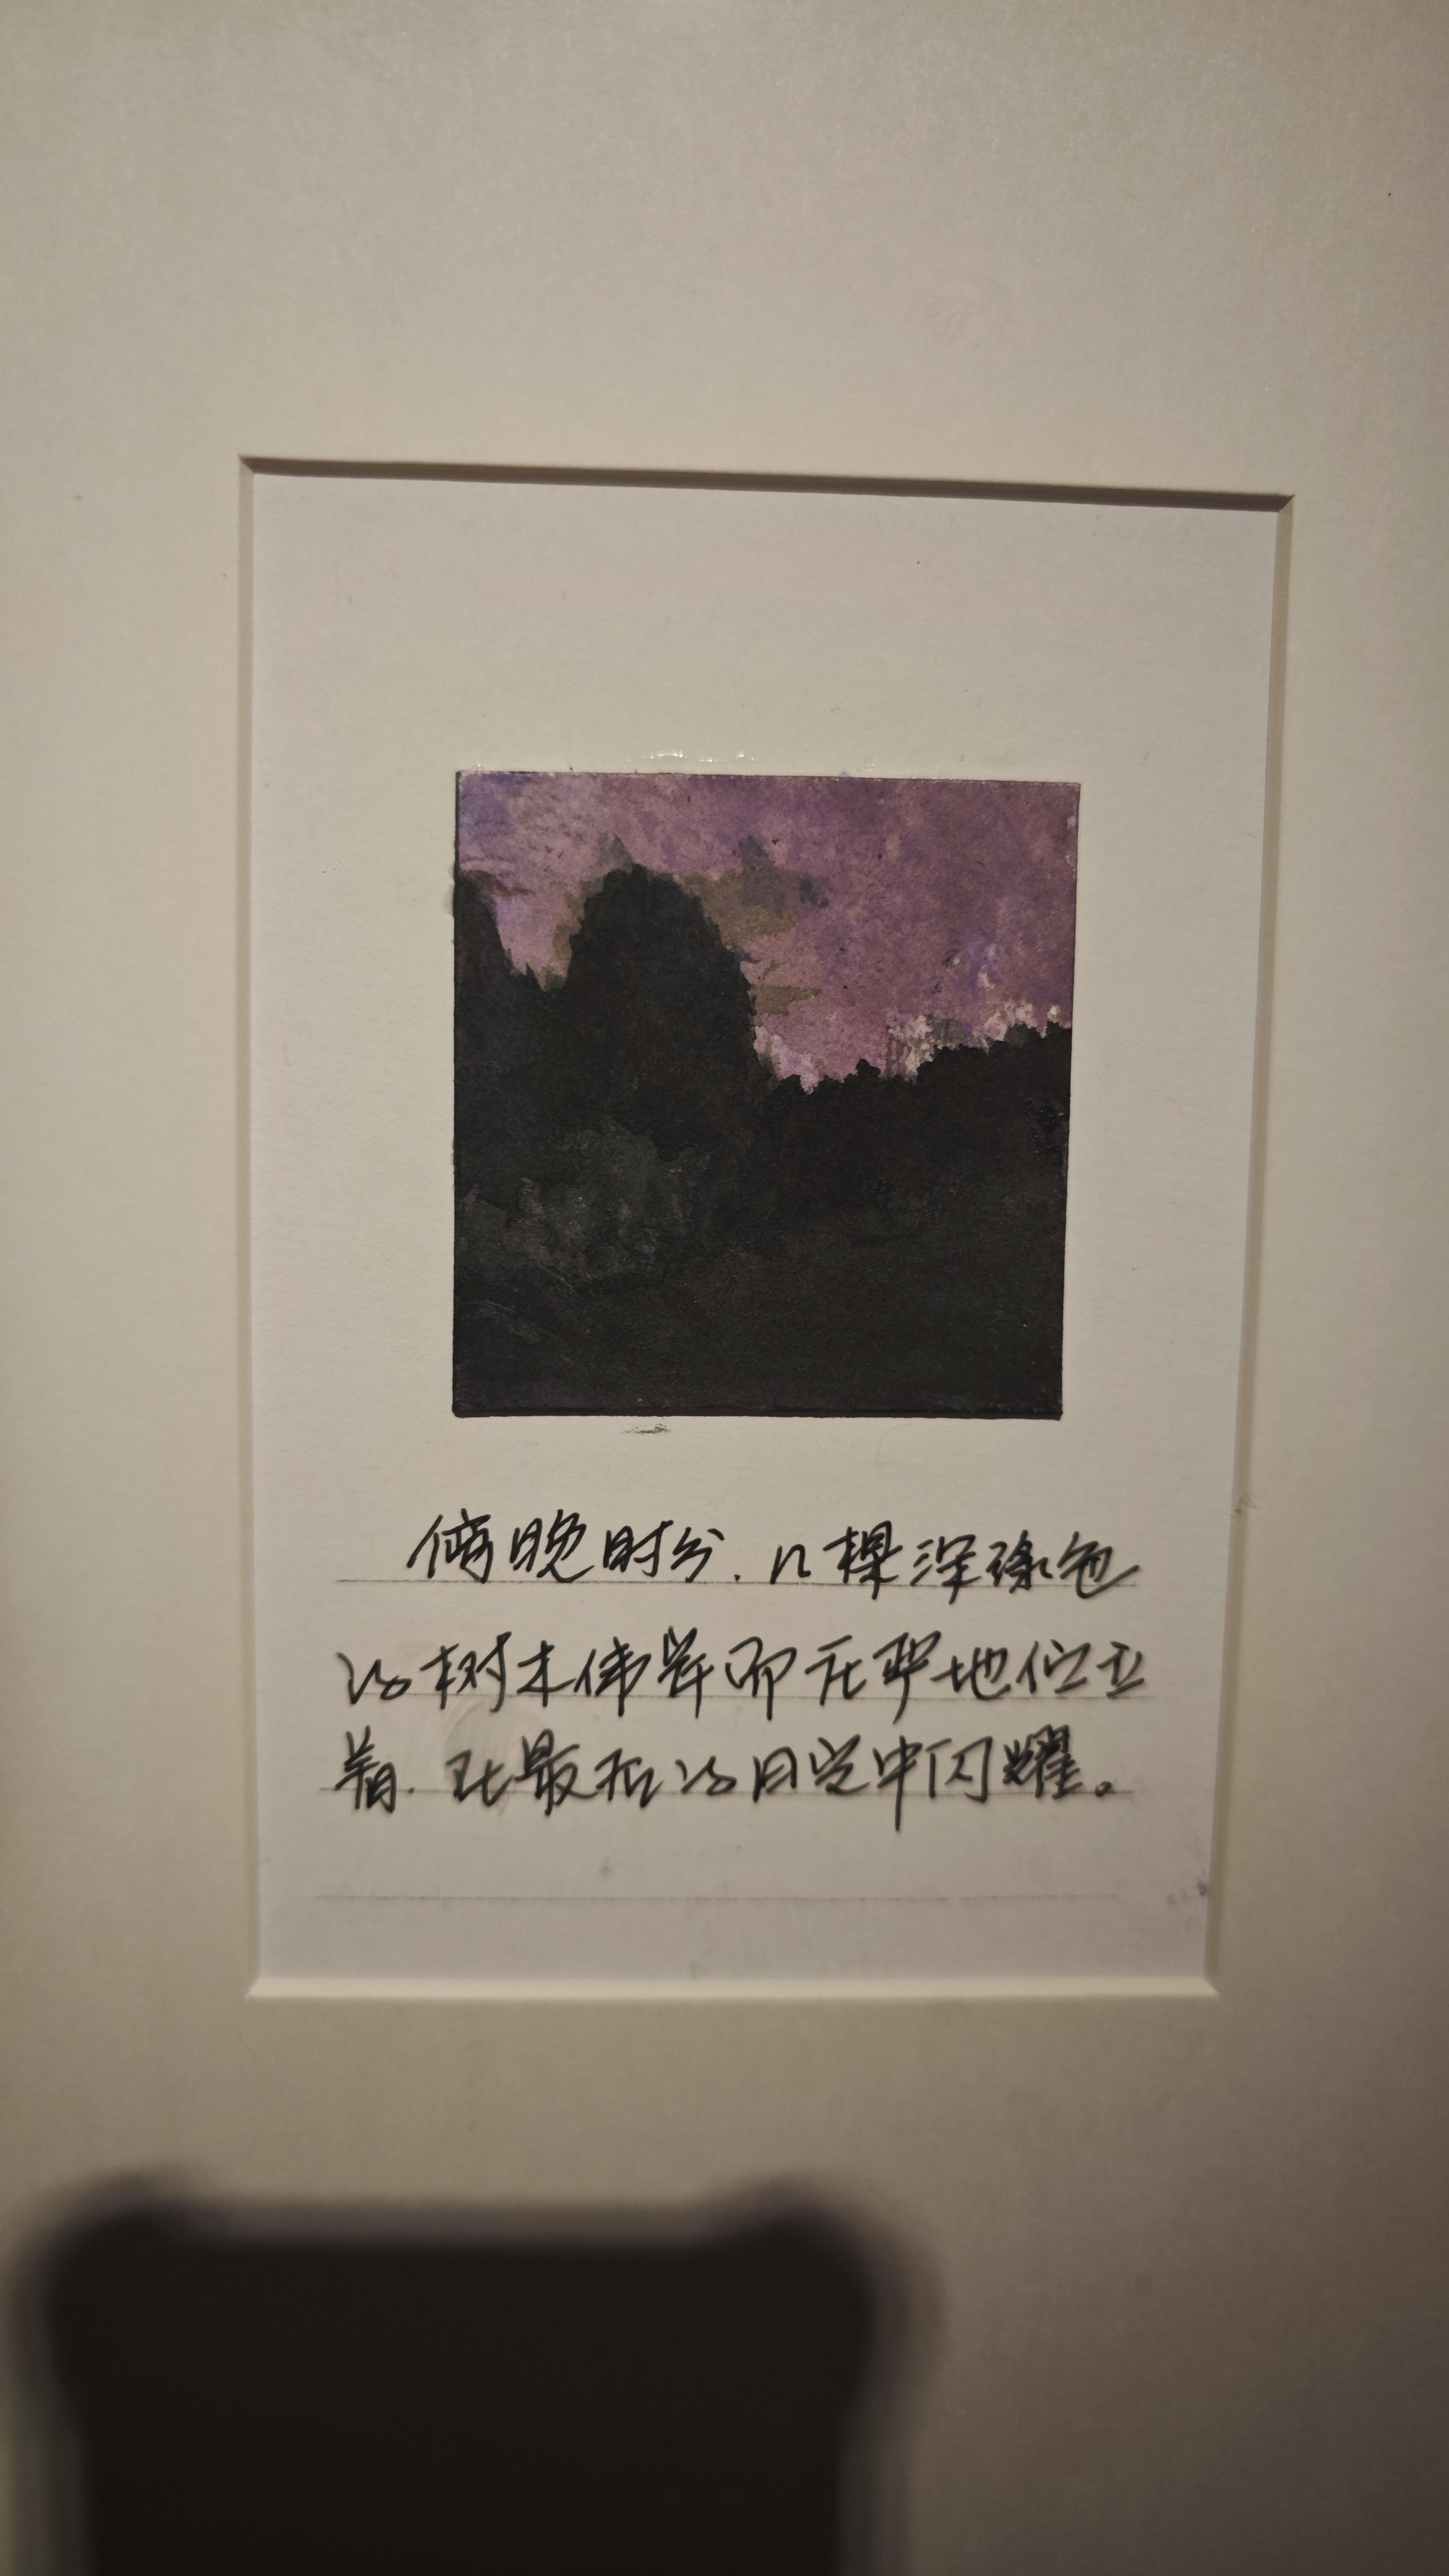 傍晚时分.几棵深绿色
的树木伟岸而庄严地伫立
着.在最后的日光中闪耀。